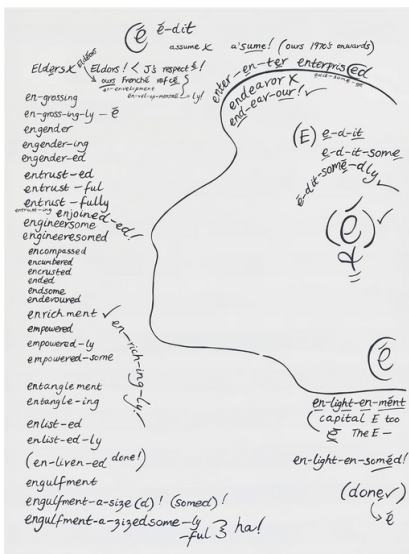 é é-dit
assume x a'sume! (ours 1970's onwards)
Elders x Eldérs Eldors! < J's respect &!
ours Frenché refcé
en-envelopment
ly!
enter-en-ter enterprised
endeavor x
end-ear-our! ✓
en-grossing
en-gross-ing-ly - é
engender
engender-ing
engender-ed
entrust-ed
entrust-ful
entrust-fully
entrust-ing enjoined-ed!
engineersome
engineeresomed
encompassed
encumbered
encrusted
ended
endsome
endevoured
enrichment ✓
en-rich-ing-ly ✓
empowered
empowered-ly
empowered-some
entanglement
entangle-ing
enlist-ed
enlist-ed-ly
(en-liven-ed done!)
engulfment
engulfment-a-size(d)! (somed)!
engulfment-a-zizedsome-ly
-ful } ha!
(E) e-d-it
e-d-it-some
é-dit-somé-dly ✓
(é) ✓
&
é
en-light-en-mént
(capital E too
é The E -
en-light-en-soméd!
(done ✓)
↳ é